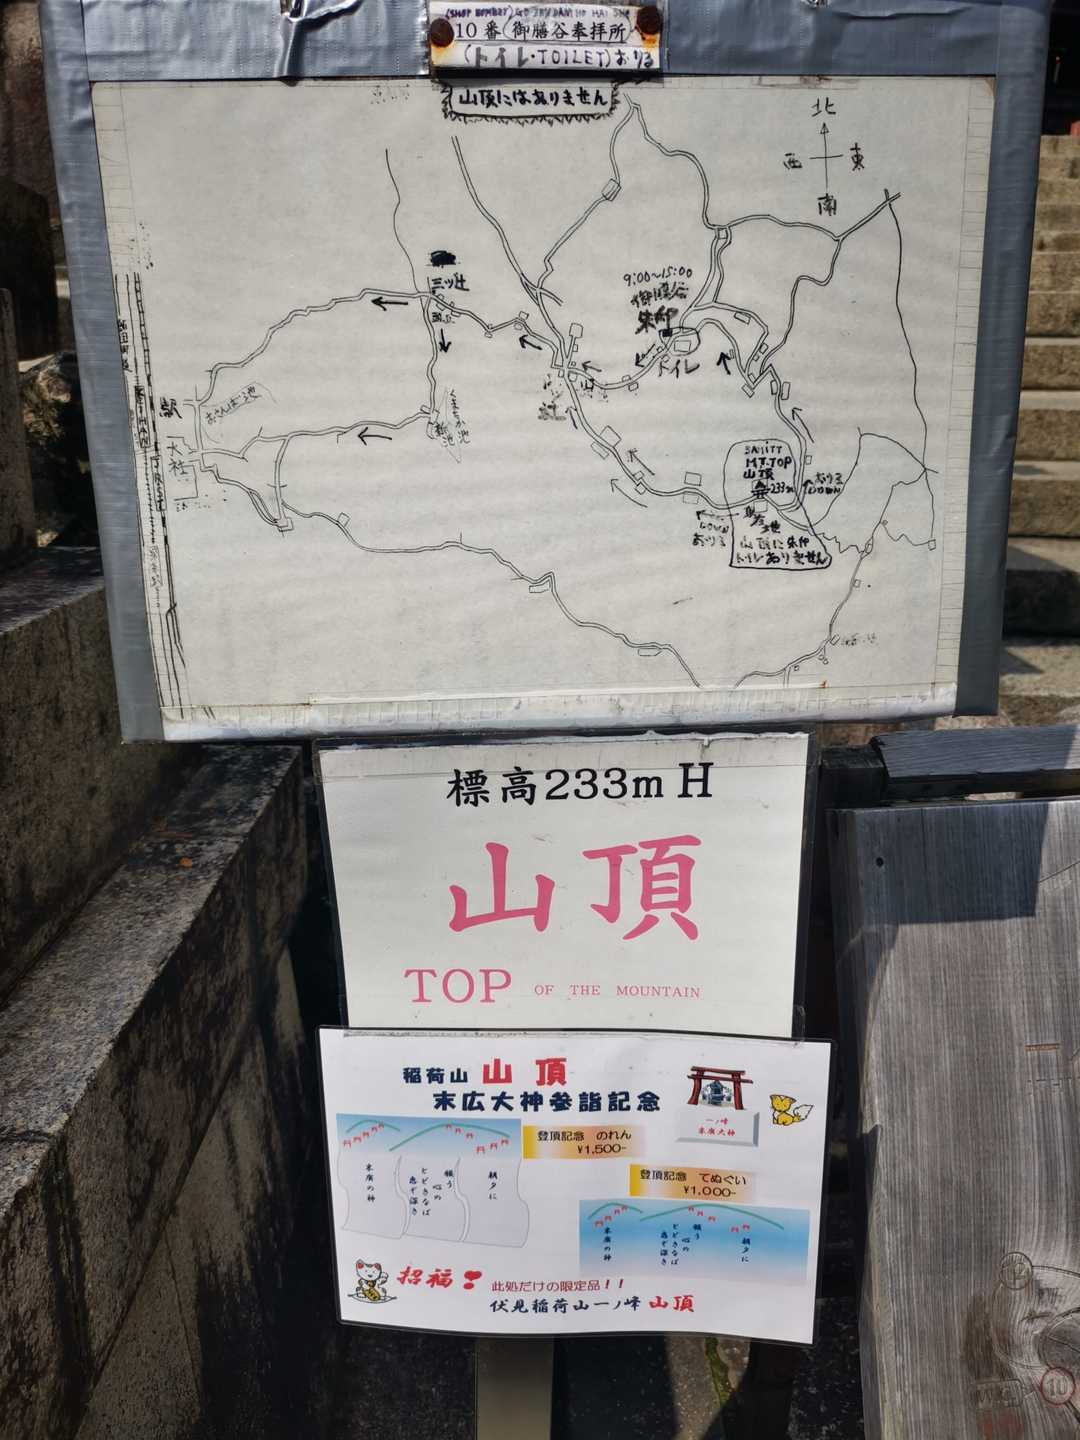 10番(御膳谷奉拝所)
(トイレ・TOILET)おりる
山頂にはありません
北
西 東
南
三ツ辻
9:00~15:00
御膳谷
朱印
トイレ
駅
大社
SAMITT
MT.TOP
山頂
233m
山頂に朱印
トイレありません
おりる
標高233m H
山頂
TOP OF THE MOUNTAIN
稲荷山 山頂
末広大神参詣記念
一ノ峰
末廣大神
登頂記念 のれん
¥1,500-
登頂記念 てぬぐい
¥1,000-
朝夕に
願う
心の
とどきなば
恵ぞ深き
末廣の神
朝夕に
願う
心の
とどきなば
恵ぞ深き
末廣の神
招福!
此処だけの限定品!!
伏見稲荷山一ノ峰 山頂